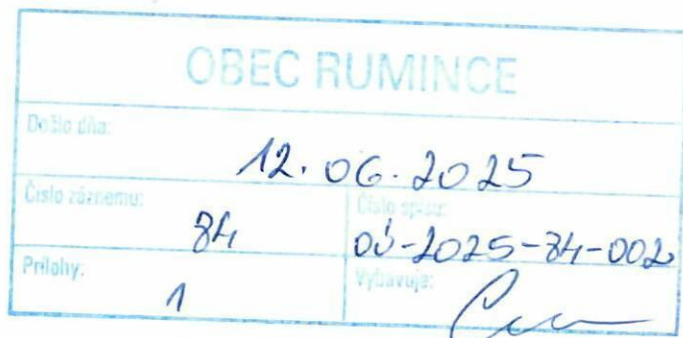 OBEC RUMINCE
Došlo dňa:
12.06.2025
Číslo záznamu:
84
Číslo spisu:
OÚ-2025-84-002
Prílohy:
1
Vybavuje: